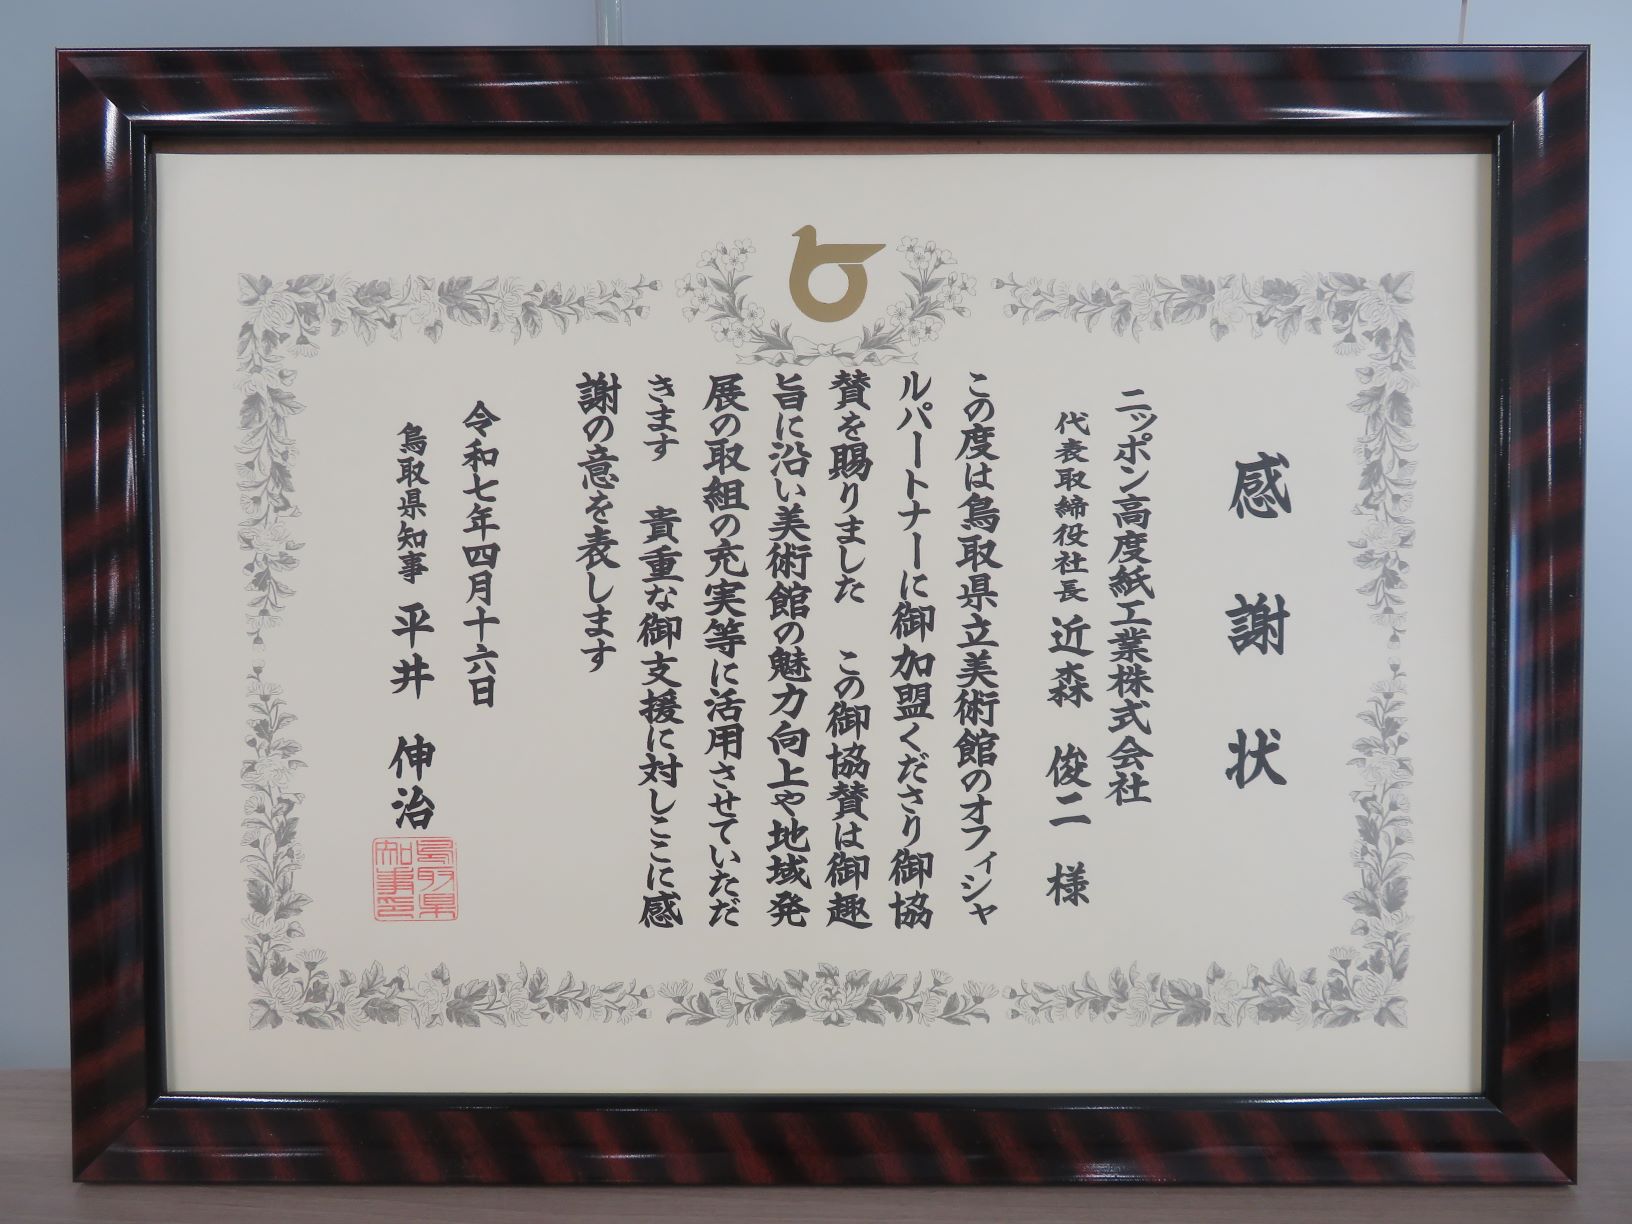 感謝状
ニッポン高度紙工業株式会社
代表取締役社長 近森 俊二 様
この度は鳥取県立美術館のオフィシャ
ルパートナーに御加盟くださり御協
賛を賜りました この御協賛は御趣
旨に沿い美術館の魅力向上や地域発
展の取組の充実等に活用させていただ
きます 貴重な御支援に対しここに感
謝の意を表します
令和七年四月十六日
鳥取県知事 平井 伸治
鳥取県
知事印